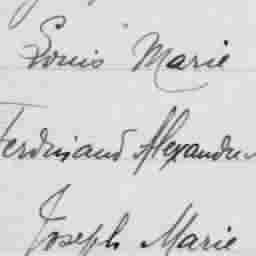 Louis Marie
Ferdinand Alexandre
Joseph Marie